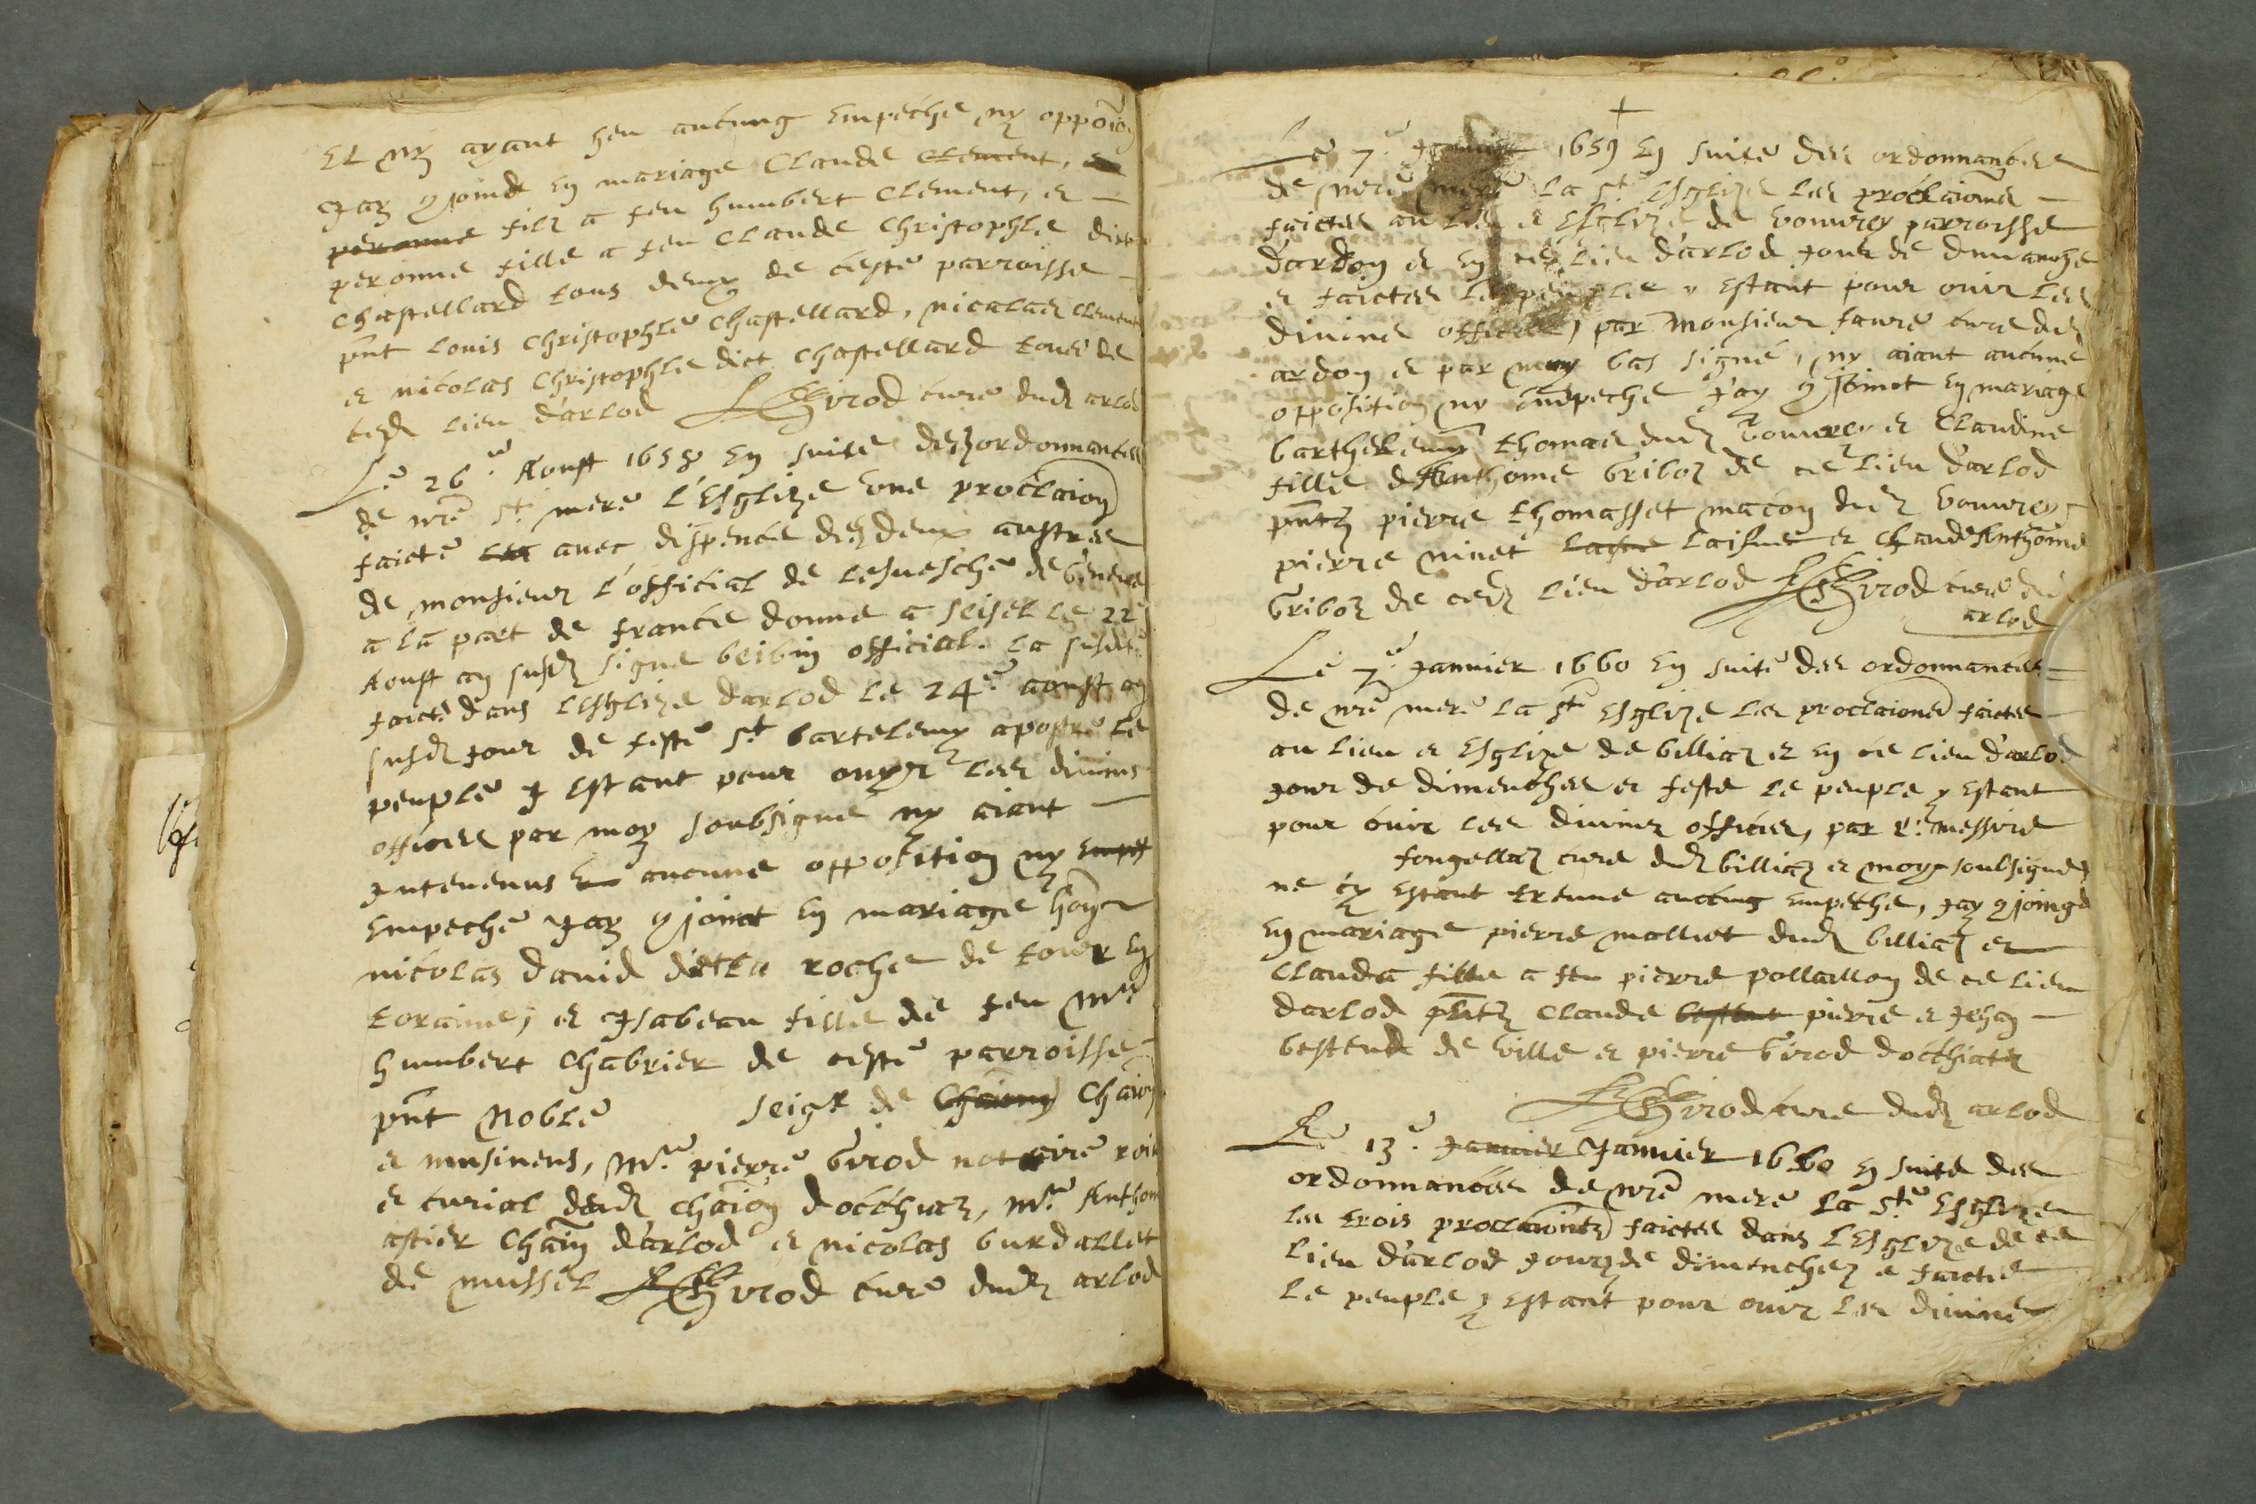 Et ny ayant heu aucung empeche ny oppoion
Jay conjoinct en mariage Claude Clement, e
peronne filz a feu humbert Clement, et
peronne fille a feu Claude Christophle dict
Chastellard tous deux de ceste parroisse
pnt Louis Christophle Chastellard, nicolas Clement
et nicolas Christophle dict Chastellard tous de
cedt lieu d'arlod Girod cure dudt arlod
Le 26e Aoust 1658 en suite des ordonnances
de nre ste mere l'Esglize une proclaion
faicte avec dispence des deux austres
de monsieur l'official de levesche de Geneve
a la part de france donne a seisel le 22e
Aoust an susdt signe official. la susdte
faicte dans lesglize d'arlod le 24e aoust an
susdt jour de feste st bartelemy apostre le
peuple y estant pour ouyr les divins
offices par moy soubsigne ny aiant
Intervenus aucune opposition ny empes
Empeche Jay conjoinct en mariage hon
nicolas david dict la roche de tour en
toraine, et Isabeau fille de feu Mre
humbert Chabrier de ceste parroisse
pnt Noble seigr de Chaion
et musinens, Mre pierre Girod notaire roial
et curial dudt chaion d'occhiaz, Mre Anthoine
astier Chain d'arlod et nicolas burdallet
de mussel Girod cure dudt arlod
Le 7e Janvier 1659 en suite des ordonnances
de nre mere la ste Esglize les proclaions
faictes au lieu et Esglize de vouvrey parroisse
d'ardon et en ce lieu d'arlod jour de dimanche
et faictes le peuple y estant pour ouir les
divins offices, par Monsieur favre cure dudt
ardon et par moy bas signé, ny aiant aucune
opposition ny empeche J'ay conjoinct en mariage
barthelemy thomas dudt vouvrey et Claudine
fille d'Anthoine Griboz de ce lieu d'arlod
pntz pierre thomasset macon dudt vouvrey
pierre ninet laisne laisne et Claude Anthoine
Griboz de cedt lieu d'arlod Girod cure du
arlod
Le 7e Janvier 1660 en suite des ordonnances
de nre mere la ste Esglize les proclaiones faictes
au lieu et Esglize de billiaz et en ce lieu d'arlod
jour de dimenches et feste le peuple y estant
pour ouir les divins offices, par re messire
fongellaz cure dudt billiaz et moy soubsigne
ne cy estant treuve aucung empeche, jay conjoingd
en mariage pierre malliet dudt billiaz et
Clauda fille a feu pierre pollaillon de ce lieu
darlod pntz Claude bestent pierre et Jehan
bestend de ville et pierre Girod d'occhiaz
Girod cure dudt arlod
Le 13e Janvier Janvier 1660 en suite des
ordonnances de nre mere la ste Esglize
les trois proclaiontz faictes dans l'Esglize de ce
lieu d'arlod jour de dimenchez e faictes
le peuple y estant pour ouir les divins